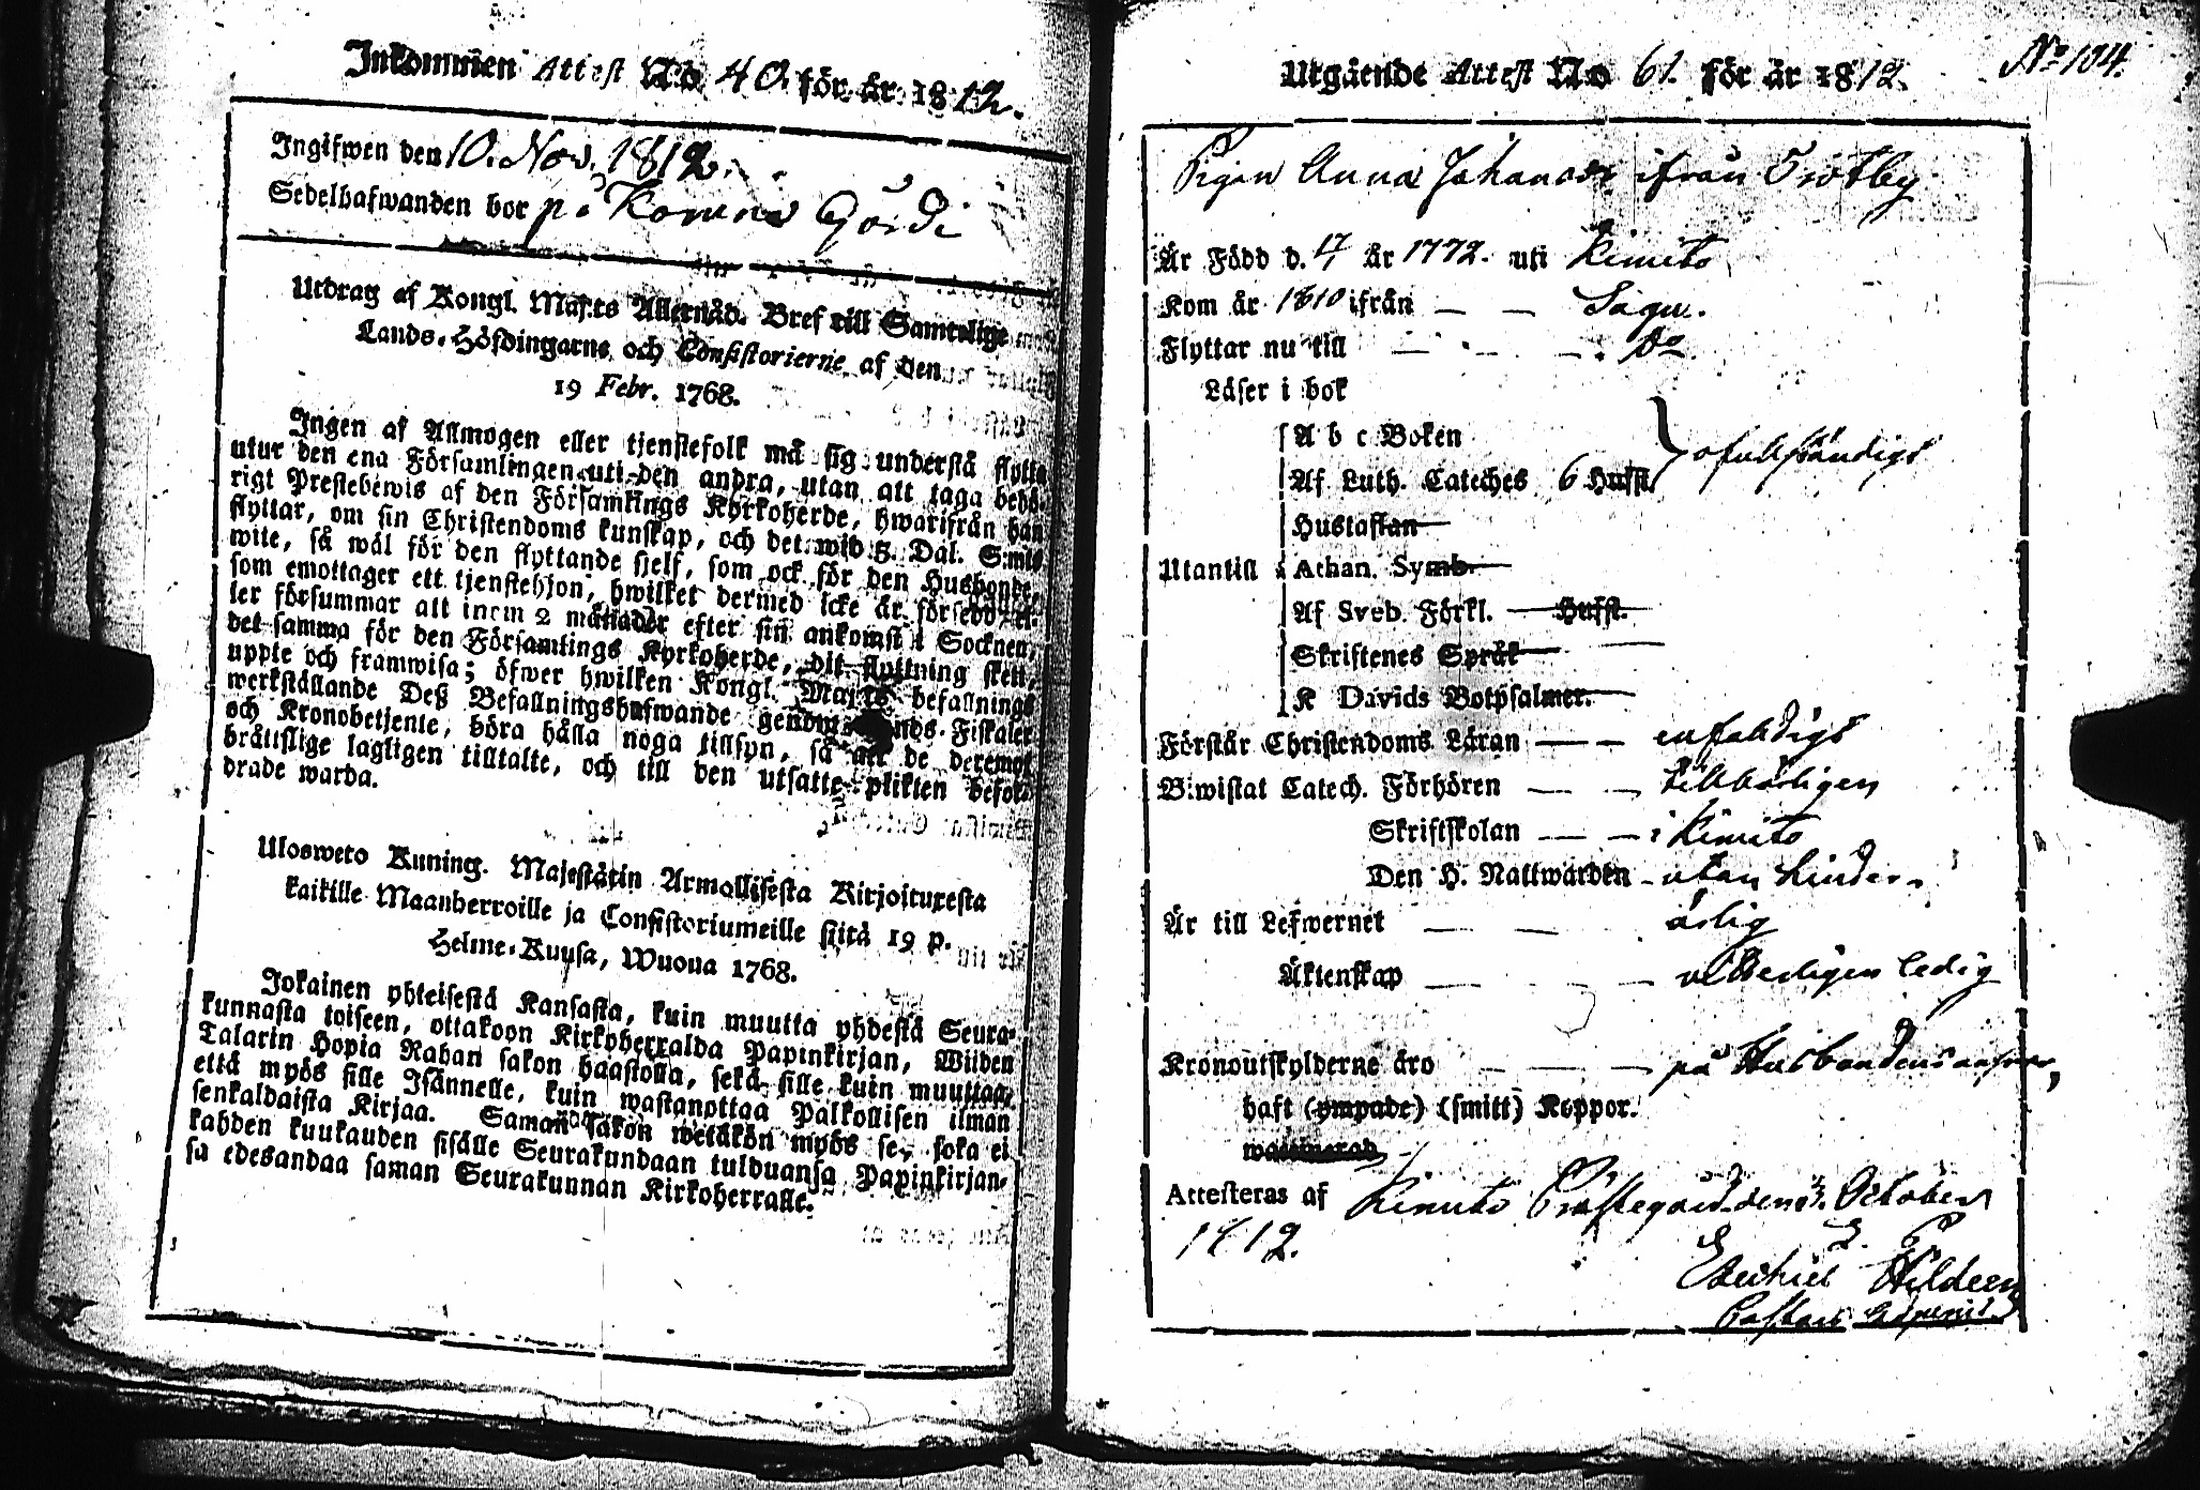 Inkommen Attest No 40. för år 1812.
Ingifwen den 10. Nov. 1812.
Sedelhafwanden bor på Gård
Utdrag af Kongl. Maj:ts Allernåd. Bref till Samtelige
Lands-Höfdingarne och Consistorierne af den
19 Febr. 1768.
Ingen af Allmogen eller tjenstefolk må sig understå flytta
utur den ena Församlingen uti den andra, utan att taga behö-
rigt Prestebewis af den Församlings Kyrkoherde, hwarifrån han
flyttar, om sin Christendoms kunskap, och det wid 5. Dal. S:mts
wite, så wäl för den flyttande sjelf, som ock för den Husbonde,
som emottager ett tjenstehjon, hwilket dermed icke är försedd el-
ler försummar att inom 2 månader efter sin ankomst i Socknen,
det samma för den Församlings Kyrkoherde, dit flyttning sken,
uppte och framwisa; öfwer hwilken Kongl. Maj:ts befallnings
werkställande Deß Befallningshafwande genom Lands-Fiskaler
och Kronobetjente, böra hålla noga tillsyn, så att de deremot
bråttslige lagligen tilltalte, och till den utsatte plikten befor-
drade warda.
Ulosweto Kuning. Majestätin Armollisesta Kirjoituxesta
kaikille Maanherroille ja Consistoriumeille siitä 19 p.
Helme-Kuusa, Wuona 1768.
Jokainen yhteisestä Kansasta, kuin muutta yhdestä Seura-
kunnasta toiseen, ottakoon Kirkoherralda Papinkirjan, Wiiden
Talarin Hopia Rahan sakon haastolla, sekä sille kuin muuttaa,
että myös sille Isännelle, kuin wastanottaa Palkollisen ilman
senkaldaista Kirjaa. Saman sakon wetäkön myös se, joka ei
kahden kuukauden sisälle Seurakundaan tulduansa Papinkirjan-
sa edesandaa saman Seurakunnan Kirkoherralle.
Utgående Attest No 61. för år 1812.
No 104.
Pigan Anna Johansdr ifrån Tröтby
Är Född d. 17/4 år 1772. uti Kimito
Kom år 1810 ifrån — — Sagu.
Flyttar nu till — — — Do
Läser i bok
A b c Boken
Af Luth. Cateches 6 Hufst. } ofullständigt
Hustaflan
Utantill Athan. Symb.
Af Sveb. Förkl. — Hufst.
Skriftenes Språk
K Davids Botpsalmer.
Förstår Christendoms Läran — — enfaldigt
Biwistat Catech. Förhören — — tillbörligen
Skriftskolan — — i Kimito
Den H. Nattwarden - utan hinder
Är till Lefwernet — — ärlig
Äktenskap — — — ledig
Kronoutskylderne äro — — — på Husbondens answar,
haft (ympade) (smitt) Koppor.
Attesteras af Kimito Prästegård den October
1812.
Hildeen
Pastors